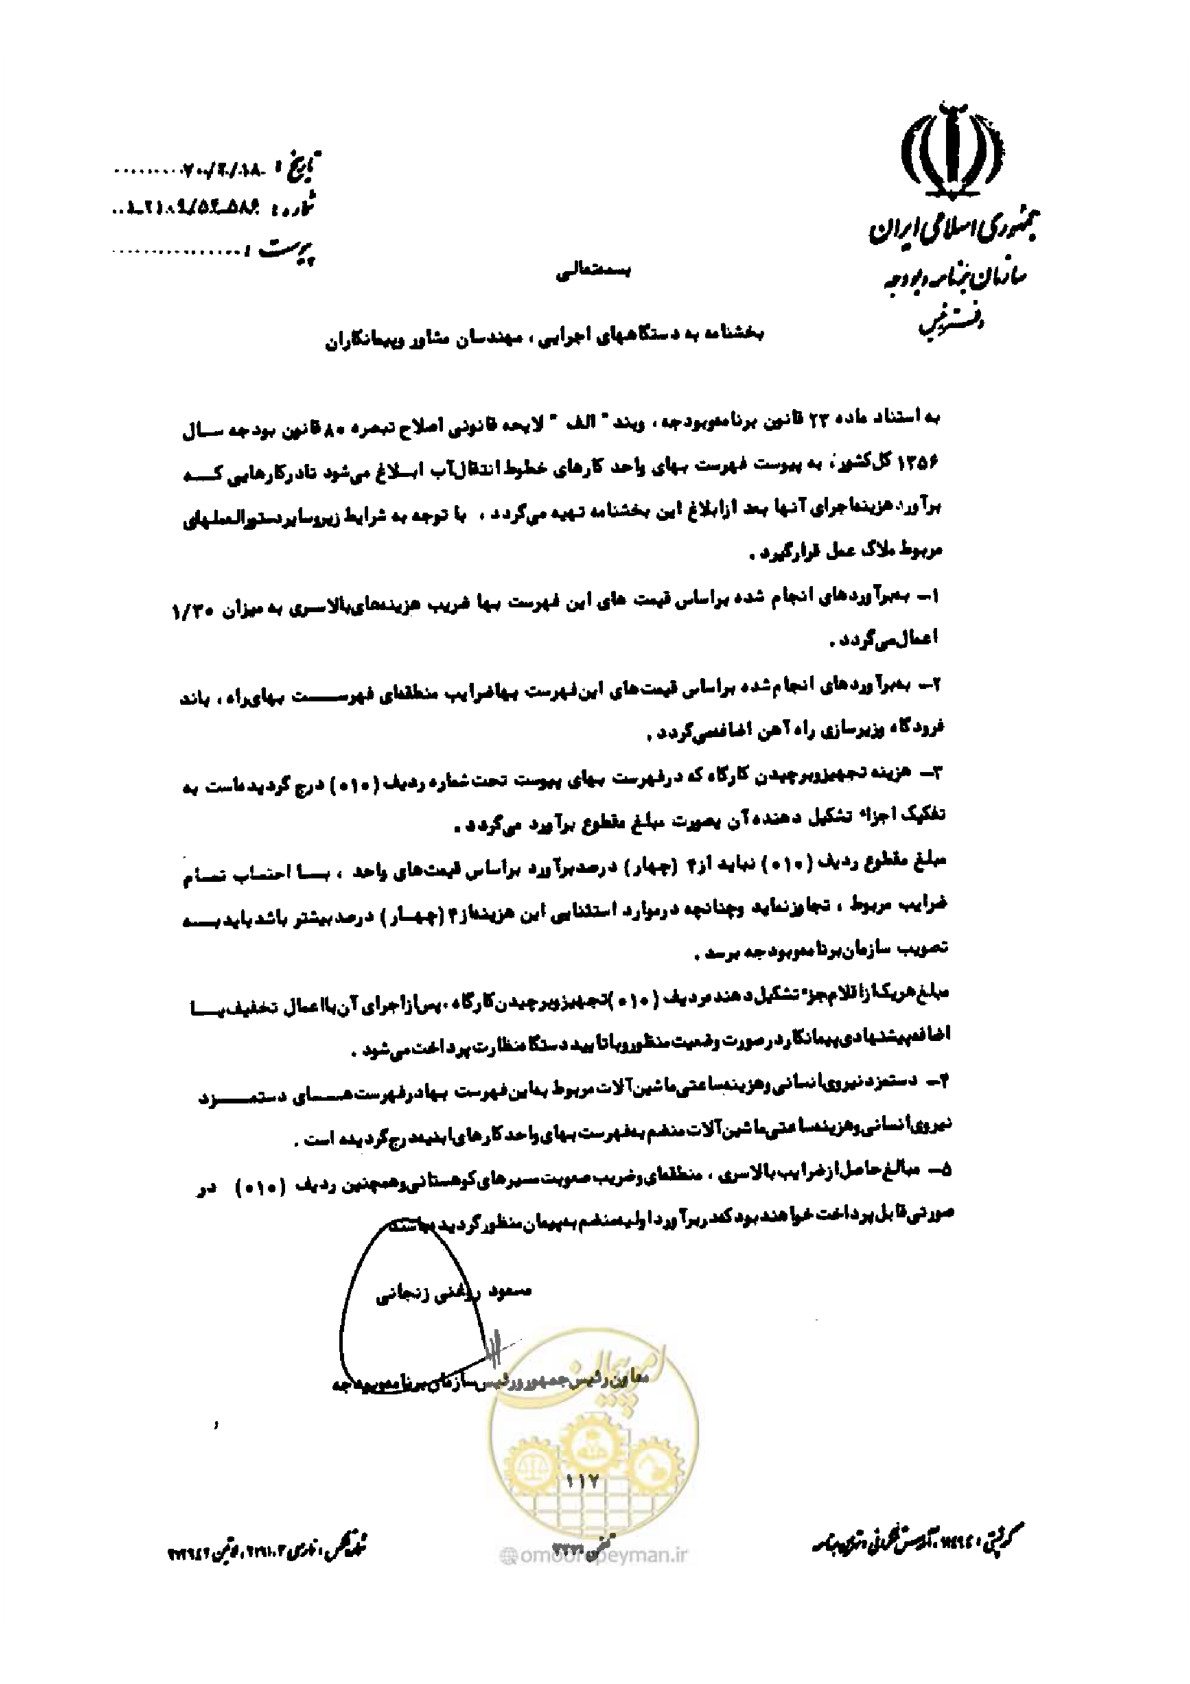 جمهوری اسلامی ایران
سازمان برنامه و بودجه
دفتر رئیس
تاریخ :
شماره :
پیوست :
بسمه‌تعالی
بخشنامه به دستگاههای اجرایی ، مهندسان مشاور وپیمانکاران
به استناد ماده ۲۳ قانون برنامه‌وبودجه ، وبند " الف " لایحه قانونی اصلاح تبصره ۸۰ قانون بودجه ســال
۱۳۵۶ کل‌کشور، به پیوست فهرست بهای واحد کارهای خطوط انتقال‌آب ابــلاغ می‌شود تادرکارهایی کــه
برآورد هزینه‌اجرای آنها بعد ازابلاغ این بخشنامه تهیه می‌گردد ، با توجه به شرایط زیروسایردستورالعملهای
مربوط ملاک عمل قرارگیرد .
۱ـ به‌برآوردهای انجام شده براساس قیمت های این فهرست بها ضریب هزینه‌های‌بالاسری به میزان ۱/۳۰
اعمال‌می‌گردد .
۲ـ به‌برآوردهای انجام‌شده براساس قیمت‌های این‌فهرست بهاضرایب منطقه‌ای فهرســـت بهای‌راه ، باند
فرودگاه وزیرسازی راه آهن اضافه‌می‌گردد .
۳ـ هزینه تجهیزوبرچیدن کارگاه که درفهرست بهای پیوست تحت‌شماره ردیف (۰۱۰) درج گردیده‌است به
تفکیک اجزاء تشکیل دهنده‌آن بصورت مبلغ مقطوع برآورد می‌گردد .
مبلغ مقطوع ردیف (۰۱۰) نباید از۴ (چهار) درصدبرآورد براساس قیمت‌های واحد ، بــا احتساب تمـام
ضرایب مربوط ، تجاوزنماید وچنانچه درموارد استثنایی این هزینه‌از۴ (چهـار) درصدبیشتر باشدباید بــه
تصویب سازمان‌برنامه‌وبودجه برسد .
مبلغ‌هریک‌ازاقلام‌جزء تشکیل‌دهنده‌ردیف (۰۱۰)تجهیزوبرچیدن‌کارگاه ،پس‌ازاجرای آن‌بااعمال تخفیف یــا
اضافه‌پیشنهادی‌پیمانکاردرصورت وضعیت منظوروباتاییددستگاه‌نظارت‌پرداخت‌می‌شود .
۴ـ دستمزدنیروی‌انسانی‌وهزینه‌ساعتی‌ماشین‌آلات مربوط به‌این‌فهرست بهادرفهرست‌هــای دستمــزد
نیروی‌انسانی‌وهزینه‌ساعتی‌ماشین‌آلات منضم به‌فهرست‌بهای‌واحدکارهای‌ابنیه‌درج‌گردیده است .
۵ـ مبالغ‌حاصل‌ازضرایب‌بالاسری ، منطقه‌ای‌وضریب‌صعوبت‌مسیرهای‌کوهستانی‌وهمچنین ردیف (۰۱۰) در
صورتی‌قابل‌پرداخت‌خواهندبودکه‌دربرآورداولیه‌منضم به‌پیمان‌منظورگردیده‌باشند
مسعود روغنی زنجانی
معاون‌رئیس‌جمهورورئیس‌سازمان‌برنامه‌وبودجه
امور پیمان
۱۱۷
omoorepeyman.ir